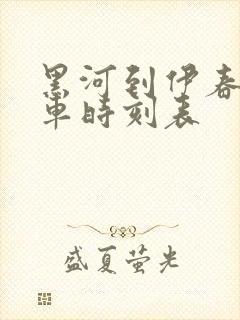 黑河到伊春
车时刻表
盛夏萤光